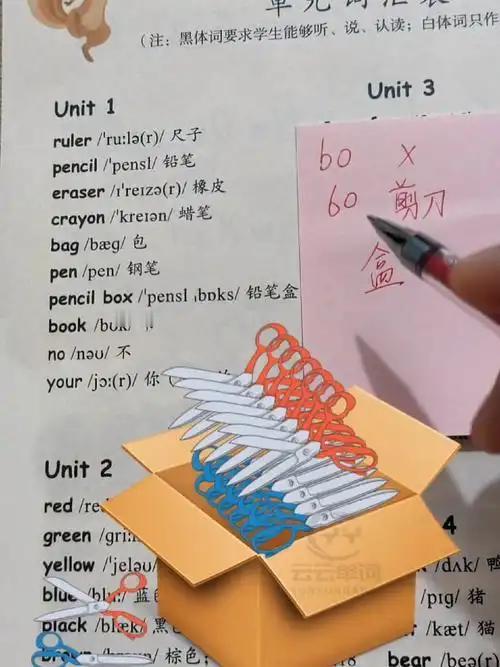 单元词汇表
（注：黑体词要求学生能够听、说、认读；白体词只作
Unit 1
ruler /ˈruːlə(r)/ 尺子
pencil /ˈpensl/ 铅笔
eraser /ɪˈreɪzə(r)/ 橡皮
crayon /ˈkreɪən/ 蜡笔
bag /bæɡ/ 包
pen /pen/ 钢笔
pencil box /ˈpensl ˌbɒks/ 铅笔盒
book /bʊk/
no /nəʊ/ 不
your /jɔː(r)/ 你
Unit 2
red /re
green /ɡriː
yellow /ˈjeləʊ
blue /bluː/ 蓝色
black /blæk/ 黑色
brown /braʊn/ 棕色；
Unit 3
bo x
60 剪刀
盒
4
/dʌk/ 鸭
/pɪɡ/ 猪
/kæt/ 猫
bear /beə(r)/
云云单词